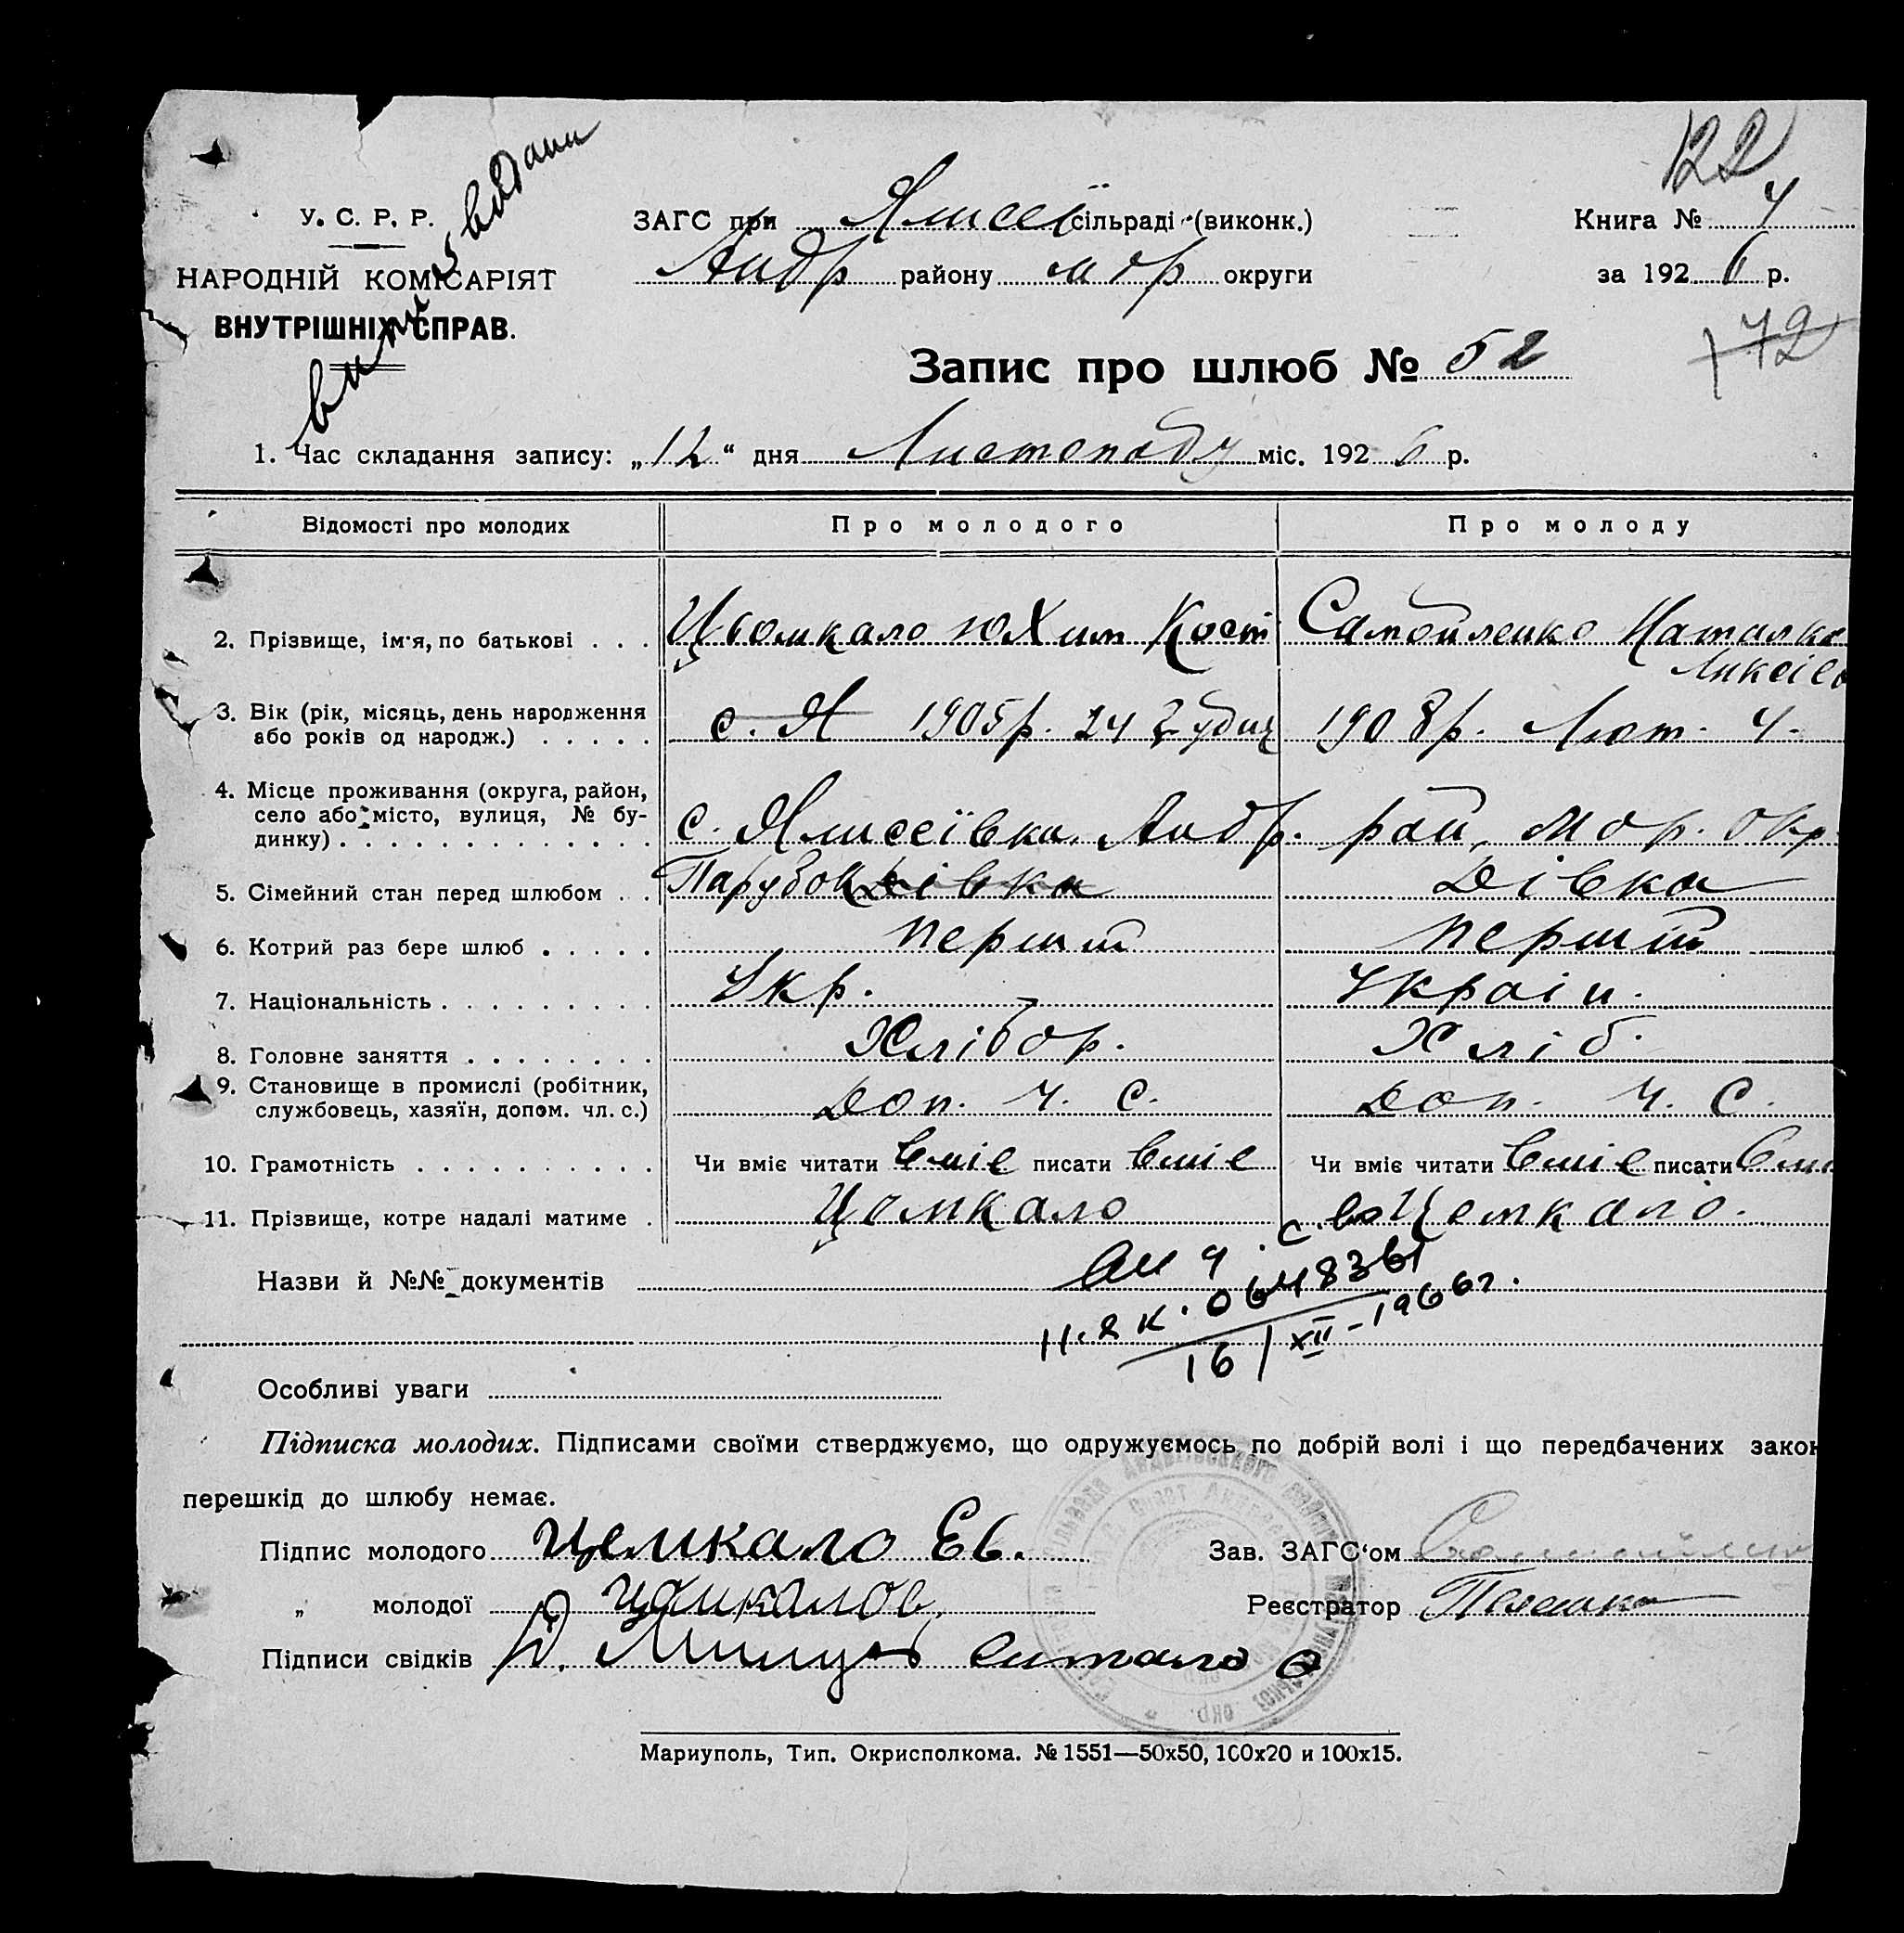 122
виписз видани
У. С. Р. Р.
ЗАГС при Ялисеї сільраді (виконк.)
Книга № 4
НАРОДНІЙ КОМІСАРІЯТ
Андр району мар округи
за 1926 р.
ВНУТРІШНІХ СПРАВ.
172
Запис про шлюб № 52
1. Час складання запису: „12“ дня Листопаду міс. 1926 р.
Відомості про молодих Про молодого Про молоду
2. Прізвище, ім'я, по батькові . . . Цьомкало юхим Кост Самойленко Наталка
Ликсіев
3. Вік (рік, місяць, день народження
або років од народж.) . . . . . с. Я 1905р. 24 Грудня 1908р. Лют. 4.
4. Місце проживання (округа, район,
село або місто, вулиця, № бу-
динку) . . . . . . . . . . . . . с. Ялисеївка, Андр. рай, Мар. окр.
5. Сімейний стан перед шлюбом . . . Парубок дівка Дівка
6. Котрий раз бере шлюб . . . . . перший перший
7. Національність . . . . . . . . . Укр. Україн.
8. Головне заняття . . . . . . . . Хлібор. Хліб.
9. Становище в промислі (робітник,
службовець, хазяїн, допом. чл. с.) Доп. ч. с. Доп. ч. с.
10. Грамотність . . . . . . . . . . . Чи вміє читати вміє писати вміє Чи вміє читати вміє писати вмі
11. Прізвище, котре надалі матиме . Цомкало Цемкало.
Назви й №№ документів
16/XII-1966г.
Особливі уваги
Підписка молодих. Підписами своїми стверджуємо, що одружуємось по добрій волі і що передбачених закон
перешкід до шлюбу немає.
Підпис молодого Цемкало Ев. Зав. ЗАГС‘ом
„ молодої Цомкалов. Реєстратор
Підписи свідків
Мариуполь, Тип. Окрисполкома. № 1551—50х50, 100х20 и 100х15.